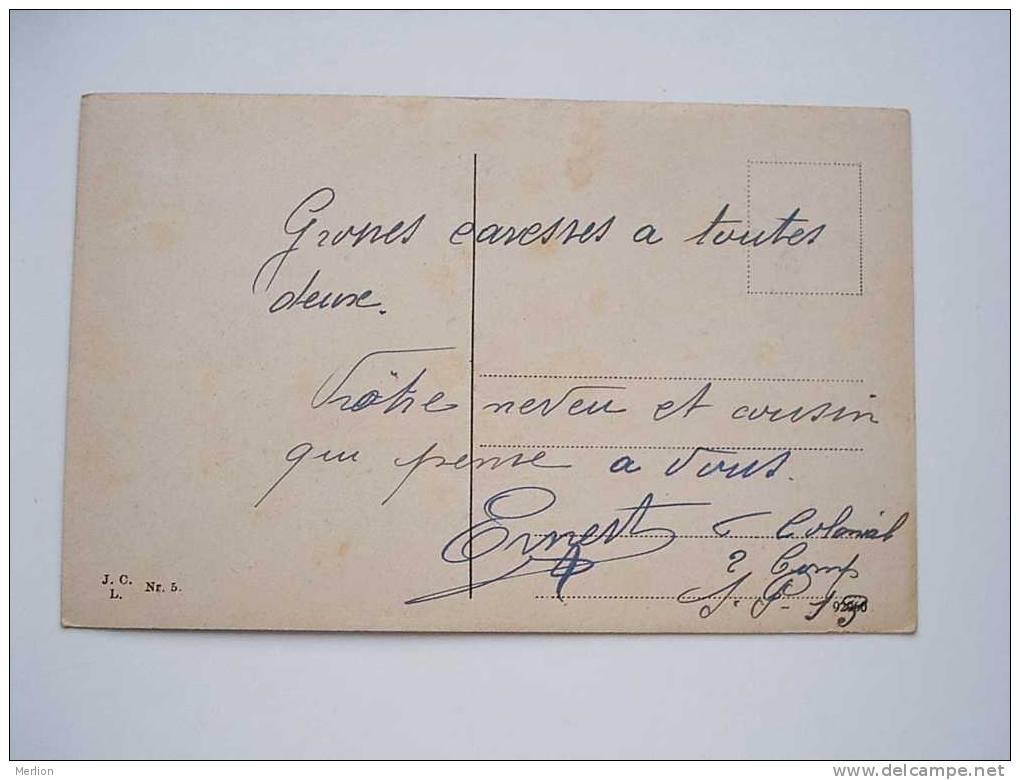 Grosses caresses a toutes
deux.
Vôtre neveu et cousin
qui pense a vous.
Ernest
Colonial
2 Comp
S. P. 15
J. C.
L.
Nr. 5.
Merlion
www.delcampe.net